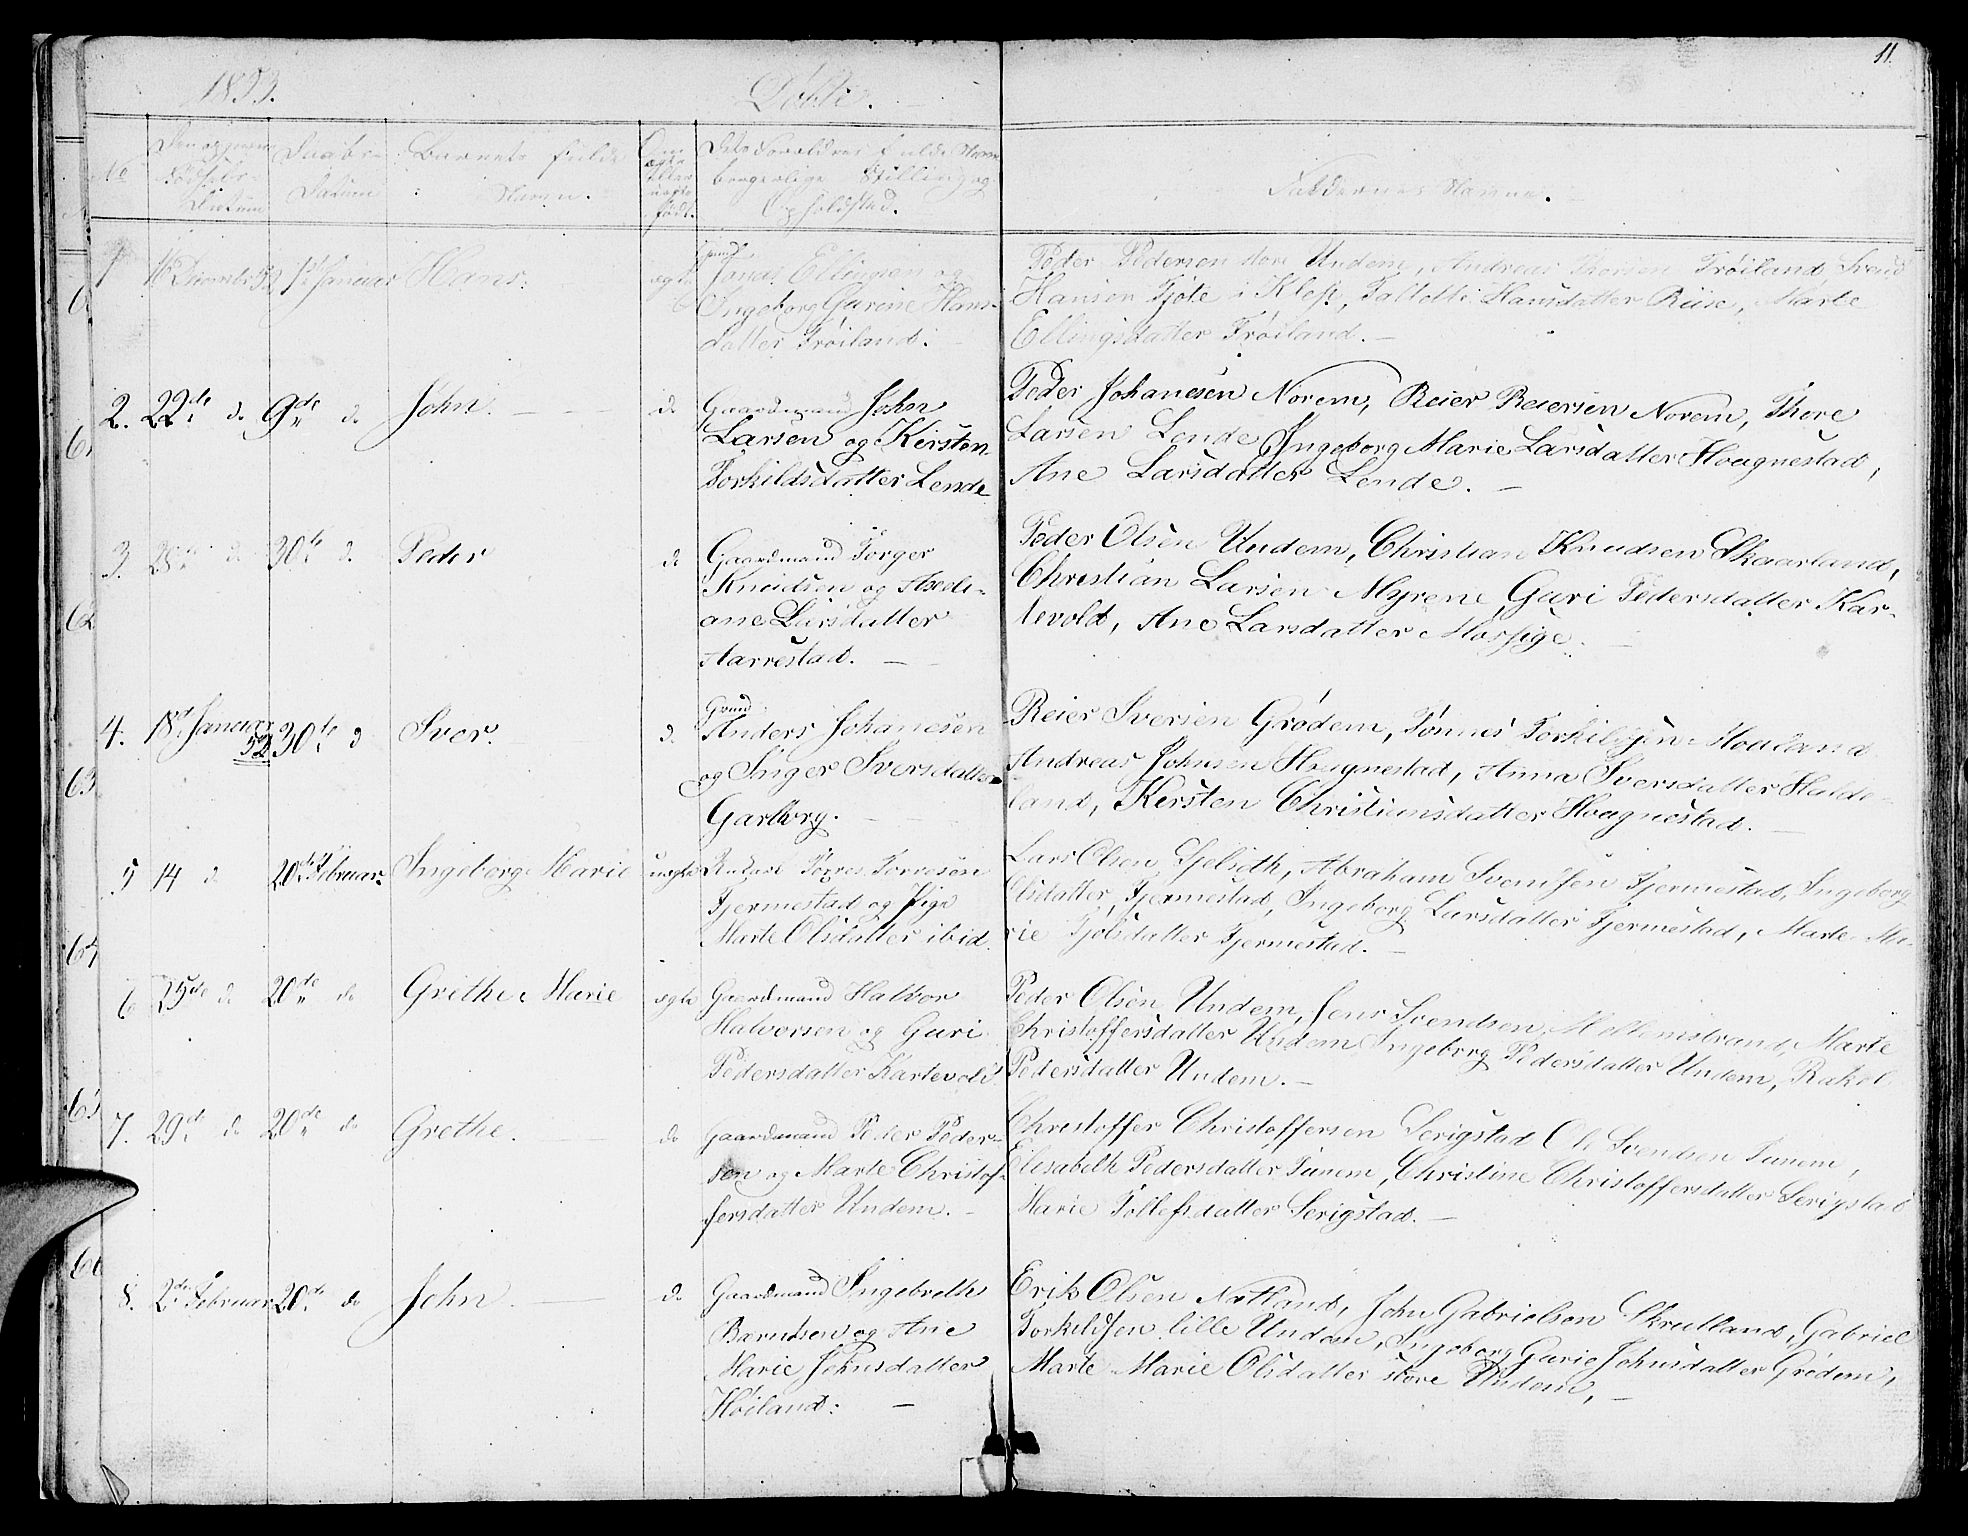 11.
1853. Døbte.
No
Den og [..]
Fødsels-
Datum
Daabs-
Datum
Barnets fulde
Navn.
Om
ægte
eller
uægte
født.
Forældres fulde Navn
borgerlige Stilling og
Opholdsted.
Faddernes Navne.
1 16 Decembr 52 1st Januar Hans. ægte
Gmd
Jonas Ellingsen og
Ingeborg Gurine Hans-
datter Frøiland.
Peder Pedersen store Undem, Andreas Thorsen Frøiland, Svend
Hansen Tjøte i Klep, Hansdatter Riise, Marte
Ellingsdatter Frøiland. —
2. 22de do 9de do John. — do
Gaardmand John
Larsen og Kirsten
Torkildsdatter Lende
Peder Johanesen Norem, Reier Reiersen Norem, Thore
Larsen Lende, Ingeborg Marie Larsdatter Haagnestad,
Ane Larsdatter Lende. —
3. 28de do 30te do Peder do
Gaardmand Torger
Knudsen og Axeli-
ane Larsdatter
Aarrestad. —
Peder Olsen Undem, Christian Knudsen Skaarland,
Christian Larsen Myrene, Guri Pedersdatter Kar-
tevold, Ane Larsdatter Mossige.
4. 18de Januar
52 30te d Iver. d.
Gmd
Anders Johanesen
og Inger Iversdatter
Garborg.
Reier Iversen Grødem, Tønnes Torkildsen Moeland
Andreas Johnsen Haagnestad, Anna Iversdatter Halde-
land, Kersten Christiansdatter Haagnestad. —
5 14 d 20de Februar Ingeborg Marie uægte
Torres Torresen
Tjermestad og Pige
Marte Olsdatter ibid.
Lars Olsen Sjelseth, Abraham Svendsen Tjermestad, Ingeborg
Olsdatter, Tjermestad, Ingeborg Larsdatter Tjermestad, Marte Ma-
rie Tjølsdatter Tjermestad. —
6 25de do 20de do Grethe Marie ægte
Gaardmand Halvor
Halvorsen og Guri
Pedersdatter Kartevold
Peder Olsen Undem, Jens Svendsen Mellemstrand, Marte
Christoffersdatter Undem Ingeborg Pedersdatter Undem, Rakel
Pedersdatter Undem. —
7. 29de do 20de do Grethe. do
Gaardmand Peder Peder-
sen og Marte Christof-
fersdatter Undem. —
Christoffer Christoffersen Serigstad Ole Svendsen Tunem,
Elisabeth Pedersdatter Tunem, Christine Christoffersdatter Serigstad
Marie Tollefsdatter Serigstad. —
8. 2den Februar 20de do John. — do
Gaardmand Ingebreth
Berntsen og Ane
Marie Johnsdatter
Høiland. —
Erik Olsen Netland, John Gabrielsen Skrudland, Gabriel
Torkildsen lille Undem, Ingeborg Gurie Johnsdatter Grødem,
Marte Marie Olsdatter store Undem, —